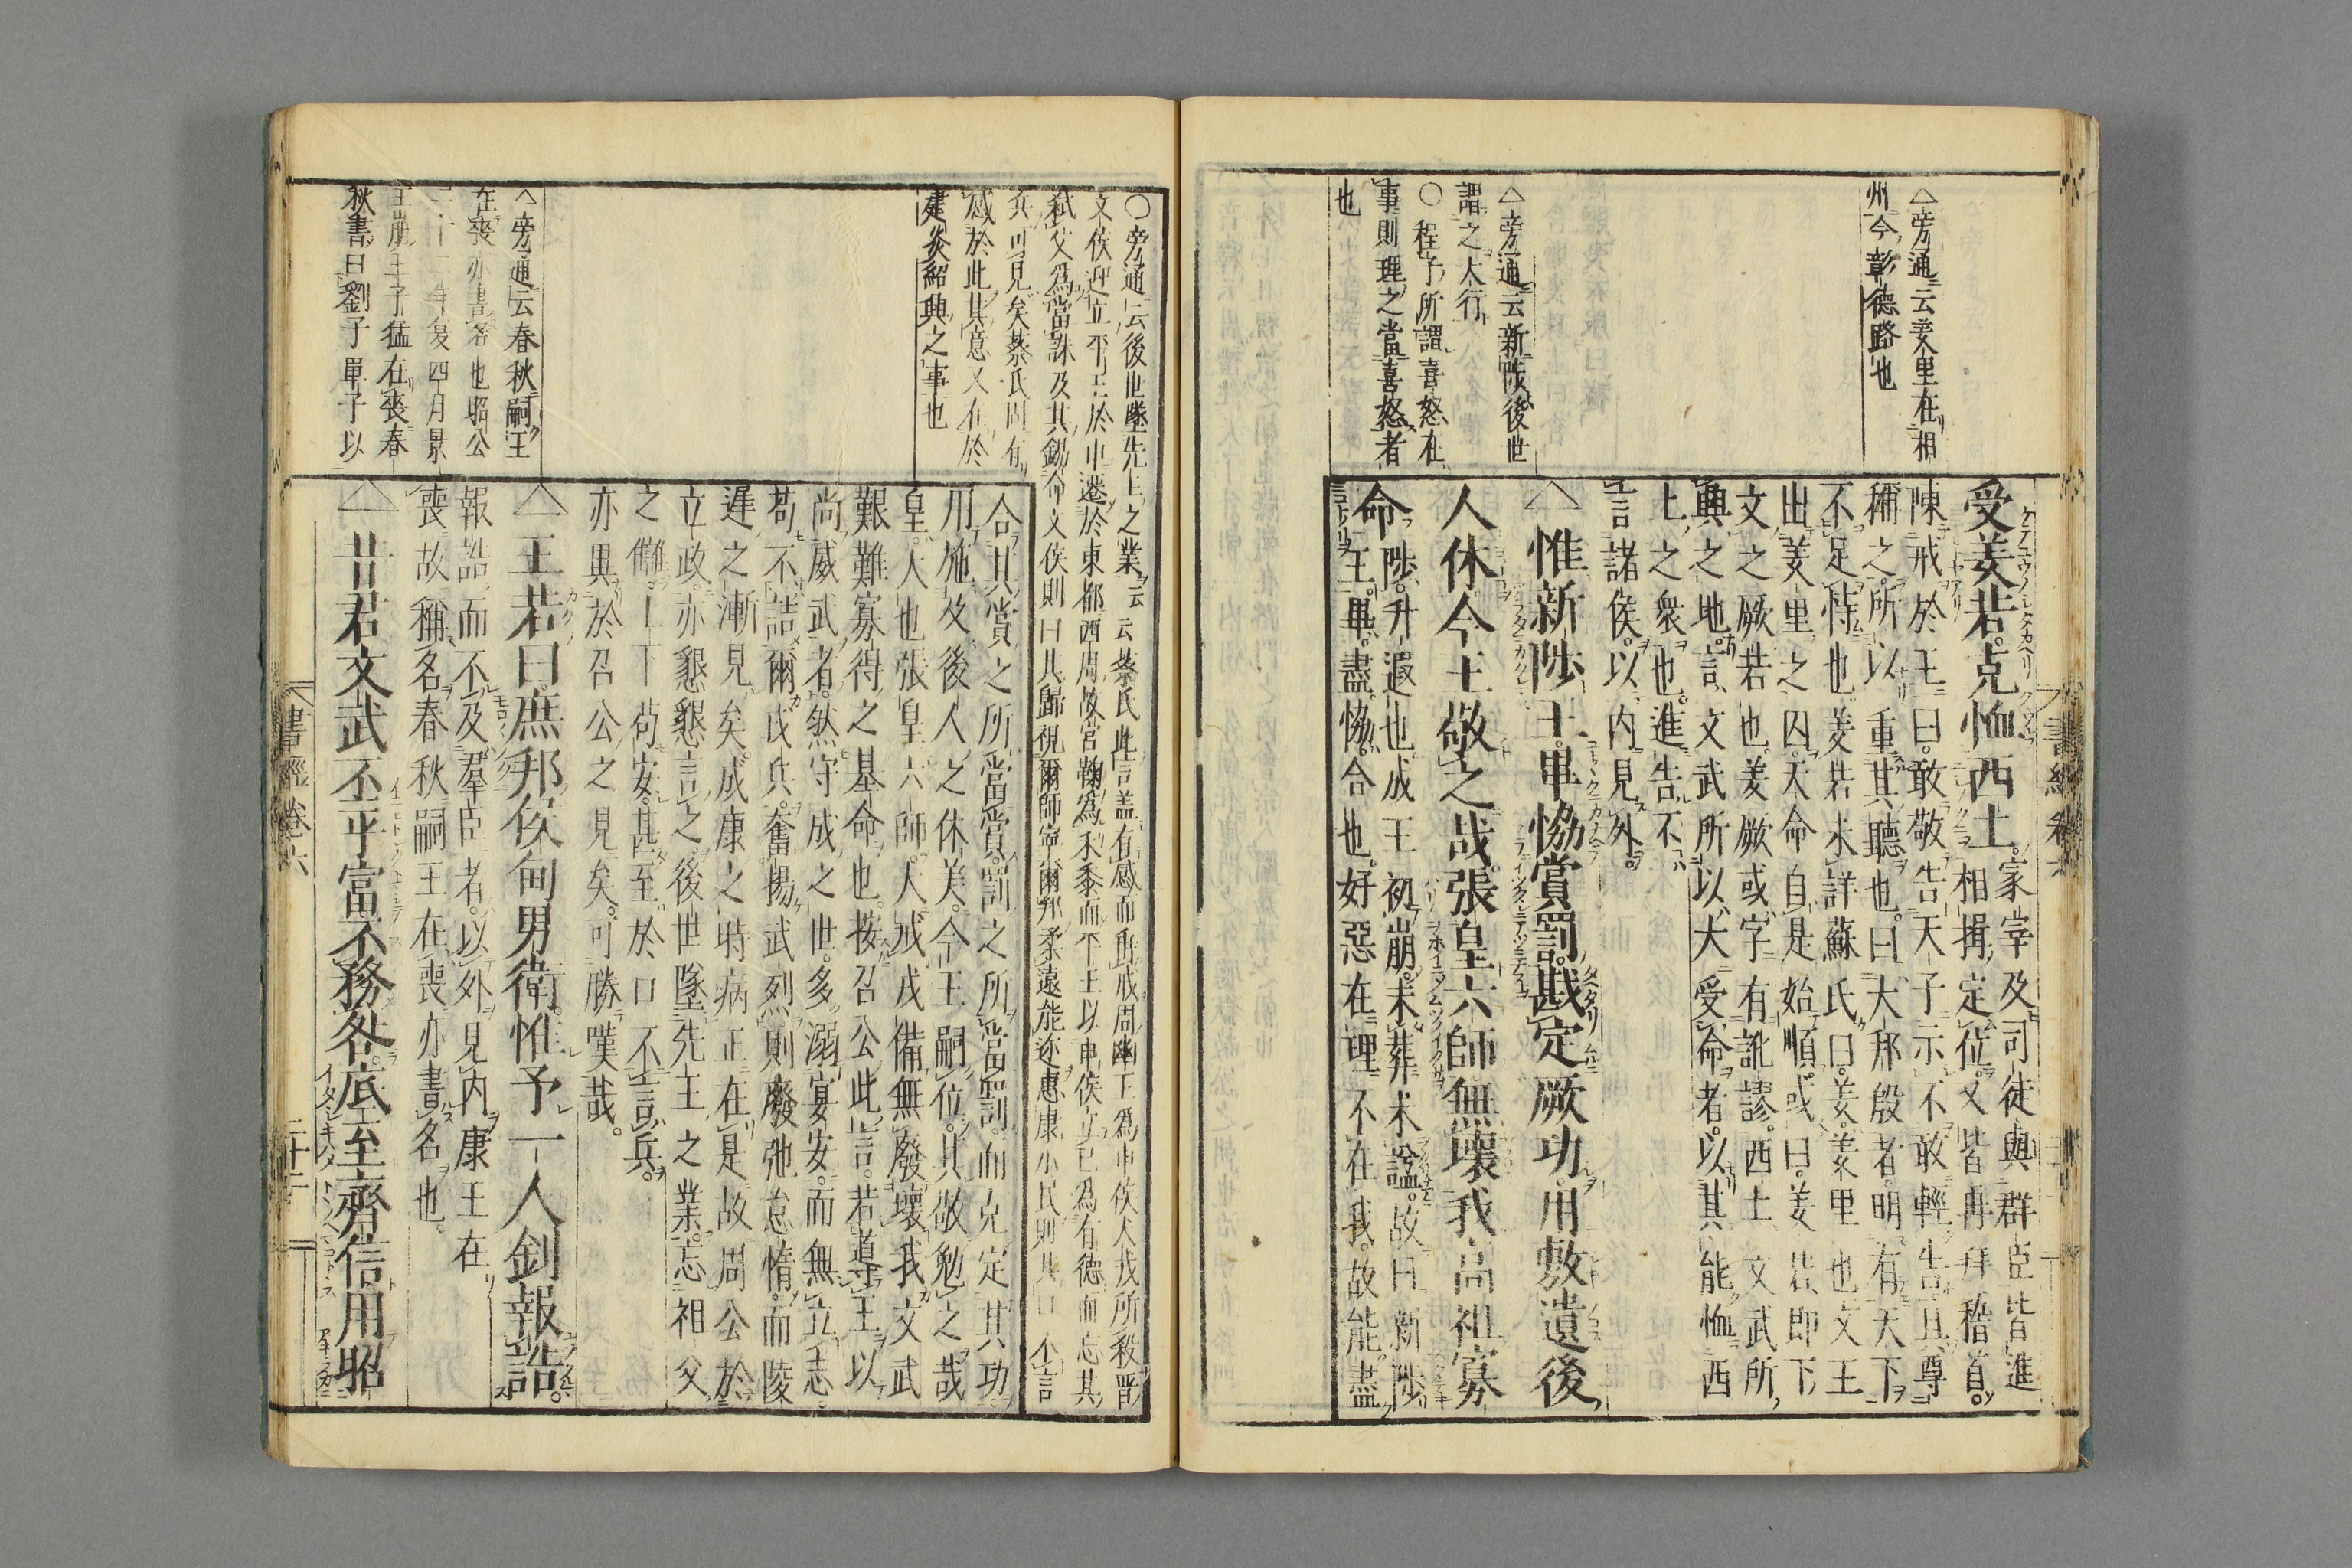 △旁通云羑里在相
州今彰德路也
受羑若。克恤西土。家宰及司徒與群臣皆進
相揖定位。又皆再拜稽首。
陳戒於王曰。敢敬告天子示不敢輕告。其尊
稱之。所以重其聽也。曰大邦殷者。明有天下
不足恃也。羑若未詳蘇氏曰。羑。羑里也文王
出羑里之囚。天命自是始順。或曰。羑若。即下
文之厥若也。羑厥或字有訛謬。西土文武所
興之地。言文武所以大受命者。以其能恤西
土之衆也。進告不
言諸侯。以內見外。
△旁通云新陟後世
謂之大行
○程子所謂喜怒在
事則理之當喜怒者
也
△惟新陟王。畢恊賞罰。戡定厥功。用敷遺後
人休。今王敬之哉。張皇六師無壞我高祖寡
命。陟。升遐也。成王初崩。未葬未謚。故曰新陟
王。畢。盡。恊。合也。好惡在理不在我。故能盡
書經卷六
○旁通云後世墜先王之業云云蔡氏此言盖有感而動戒周幽王爲申侯犬戎所殺晋
文侯迎立平王於申遷於東都西周故宮鞠爲禾黍而平王以申侯立已爲有德而忘其
弑父爲當誅及其錫命文侯則曰其歸視爾師寧爾邦柔遠能迩惠康小民則其口不言
兵可見矣蔡氏固有
感於此其意又在於
建炎紹興之事也
合其賞之所當賞。罰之所當罰。而克定其功。
用施及後人之休美。今王嗣位。其敬勉之哉
皇。大也張皇六師。大戒戎備無廢壞我文武
艱難寡得之基命也。按召公此言。若導王以
尚威武者。然守成之世。多溺宴安。而無立志
苟不詰爾戎兵。奮揚武烈。則廢弛怠惰。而陵
遲之漸見矣。成康之時病正在是故周公於
立政。亦懇懇言之後世墜先王之業。忘祖父
之讎。上下苟安。甚至於口不言兵。
亦異於召公之見矣。可勝嘆哉。
△旁通云春秋嗣王
在喪亦書名也昭公
二十二年夏四月景
王崩王子猛在喪春
秋書曰劉子單子以
△王若曰。庶邦侯甸男衛。惟予一人釗報誥。
報誥而不及羣臣者。以外見內康王在
喪故稱名春秋嗣王在喪亦書名也
△昔君文武丕平富不務咎。底至齊信用昭
書經卷六
二十二